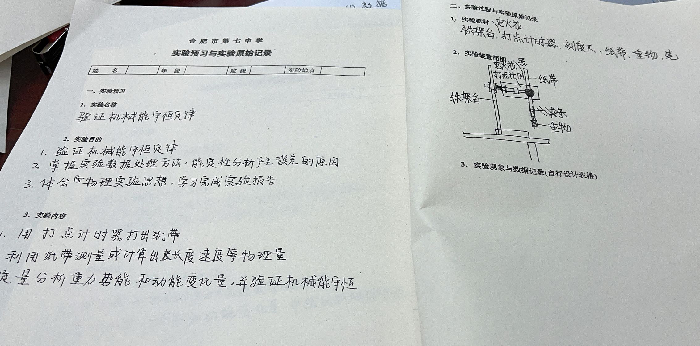 合肥市第七中学
实验预习与实验原始记录
姓 名 年 级 班 级 实验地点
一、实验预习
1. 实验名称
验证机械能守恒定律
2. 实验目的
1. 验证机械能守恒定律
2. 掌握实验数据处理方法，能定性分析产生误差的原因
3. 体会物理实验思想，学习完成实验报告
3. 实验内容
1. 用打点计时器打出纸带
利用纸带测量或计算出长度速度等物理量
定量分析重力势能和动能变化量，并验证机械能守恒
二、实验过程与实验原始记录
1. 实验器材
铁架台、打点计时器、刻度尺、纸带、重物、
2. 实验装置简图
打点计时器
纸带
铁架台
夹子
重物
3. 实验现象与数据记录(自行设计表格)